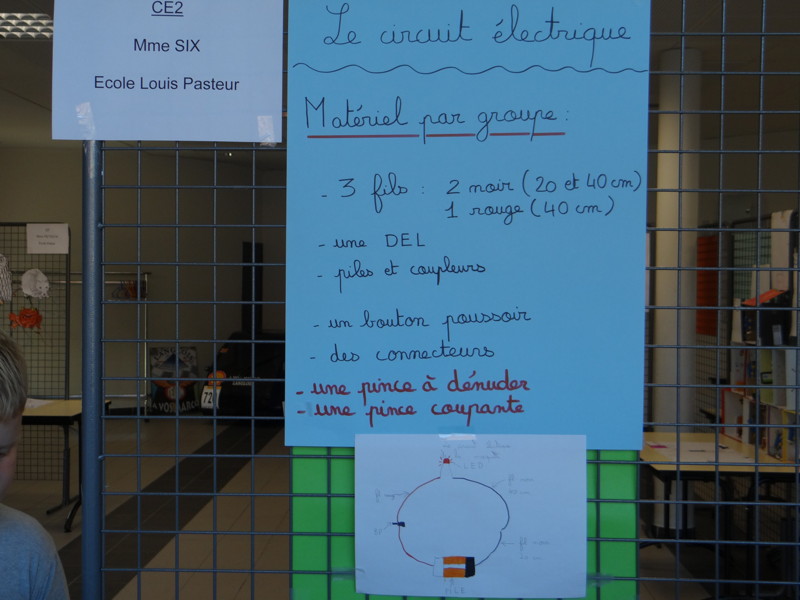 CE2
Mme SIX
Ecole Louis Pasteur
Le circuit électrique
Matériel par groupe :
- 3 fils : 2 noir (20 et 40 cm)
1 rouge (40 cm)
- une DEL
- piles et coupleurs
- un bouton poussoir
- des connecteurs
- une pince à dénuder
- une pince coupante
LED
72